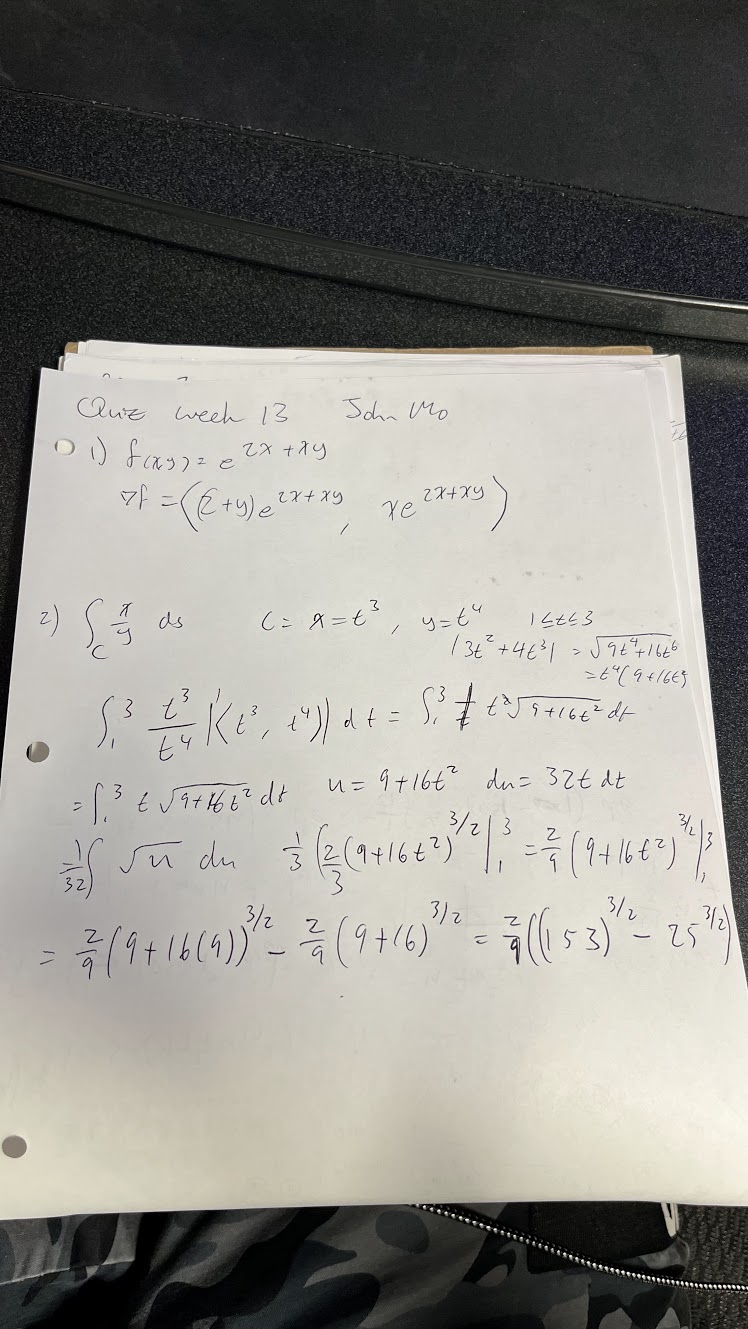 Quiz week 13 John Mo
1) f(xy) = e^{2x+xy}
∇f = ⟨(2+y)e^{2x+xy}, xe^{2x+xy}⟩
2) ∫_C x/y ds C = x = t^3, y = t^4 1≤t≤3
|3t^2+4t^3| = √(9t^4+16t^6)
= t^4(9+16t^2)
∫_1^3 t^3/t^4 |⟨t^3, t^4⟩'| dt = ∫_1^3 1/t t^2√(9+16t^2) dt
= ∫_1^3 t √(9+16t^2) dt u = 9+16t^2 du = 32t dt
= 1/32 ∫ √u du 1/3 (2/3 (9+16t^2)^{3/2} |_1^3 = 2/9 (9+16t^2)^{3/2} |_1^3
= 2/9 (9+16(9))^{3/2} − 2/9 (9+16)^{3/2} = 2/9 ((153)^{3/2} − 25^{3/2})